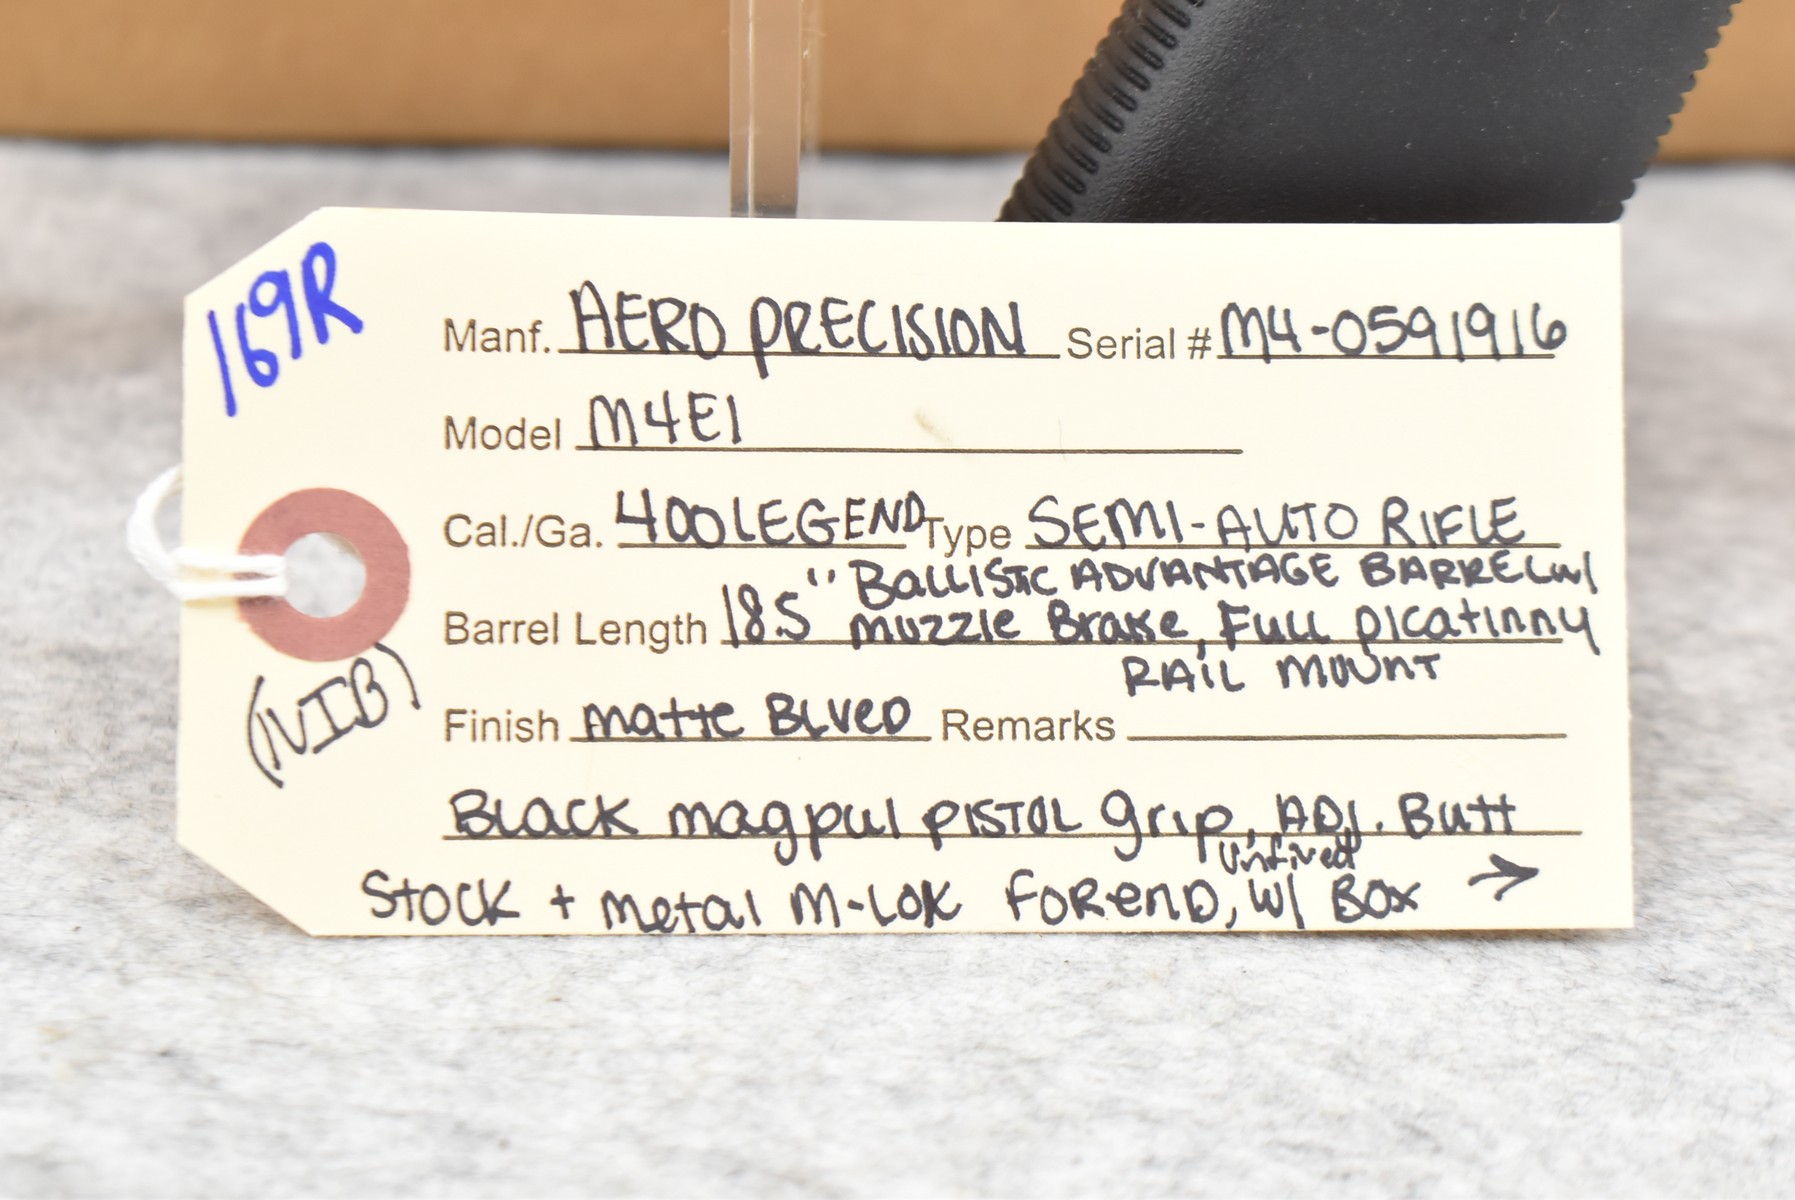 169R
Manf. AERO PRECISION Serial # M4-0591916
Model M4E1
Cal./Ga. 400 LEGEND Type SEMI-AUTO RIFLE
Ballistic ADVANTAGE BARREL w/
Barrel Length 18.5" muzzle Brake, Full picatinny
RAIL MOUNT
(NIB)
Finish matte BLUED Remarks
Black magpul PISTOL grip, ADJ. Butt
unfired
Stock + metal M-LOK Forend, w/ BOX →